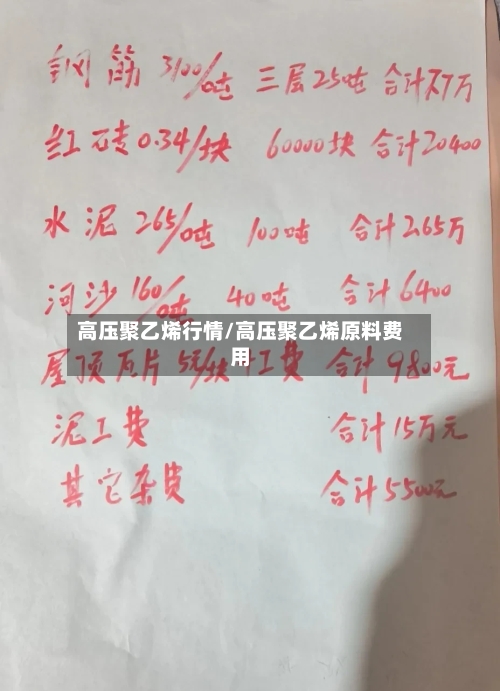 钢筋 3100/吨 三层25吨 合计7.7万
红砖0.34/块 60000块 合计20400
水泥 265/吨 100吨 合计2.65万
河沙160/吨 40吨 合计6400
高压聚乙烯行情/高压聚乙烯原料费
用
屋顶瓦片 5元/块 工费 合计9800元
泥工费 合计15万元
其它杂费 合计5500元